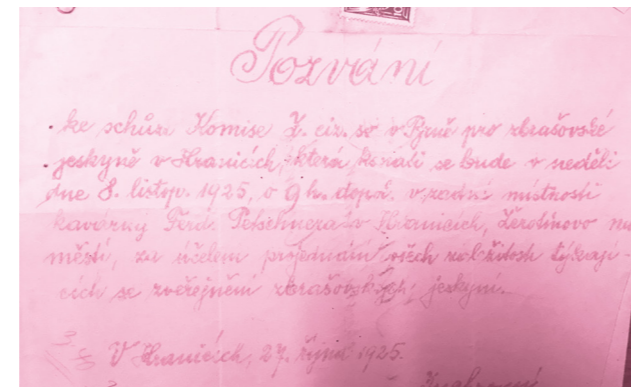 Pozvání
ke schůzi Komise Z. ciz. sv v Brně pro zbrašovské
jeskyně v Hranicích, která konati se bude v neděli
dne 8. listop. 1925, o 9 h. dopol. v zadní místnosti
kavárny Ferd. Petschnera v Hranicích, Žerotínovo ná
městí, za účelem projednání všech záležitostí týkají-
cích se zveřejněním zbrašovských jeskyní.
V Hranicích, 27. října 1925.